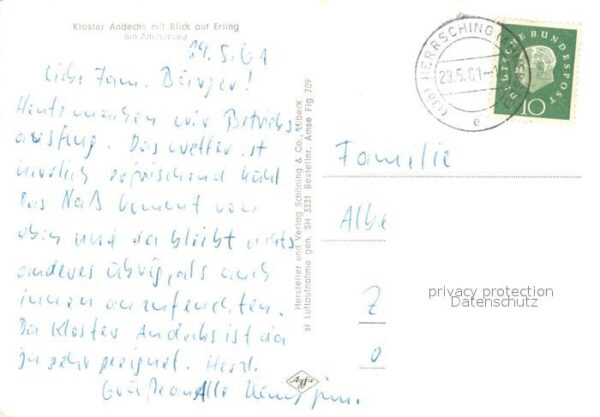 Kloster Andechs mit Blick auf Erling
am Ammersee
29.5.61
Liebe Fam. Bürger!
Heute machen wir Betriebs
ausflug. Das Wetter ist
herrlich erfrischend kühl.
Das Naß kommt von
oben und da bleibt nichts
anderes übrig, als auch
innen anzufeuchten.
Da Kloster Andechs ist da
ja sehr geeignet. Herzl.
Grüße an Alle
Hersteller und Verlag Schöning & Co., Lübeck
si Luftaufnahme gen. SH 3331 Bestellnr. Amse Flg 709
HERRSCHING
29.5.61
e
DEUTSCHE BUNDESPOST
10
Familie
Albe
Z
o
privacy protection
Datenschutz